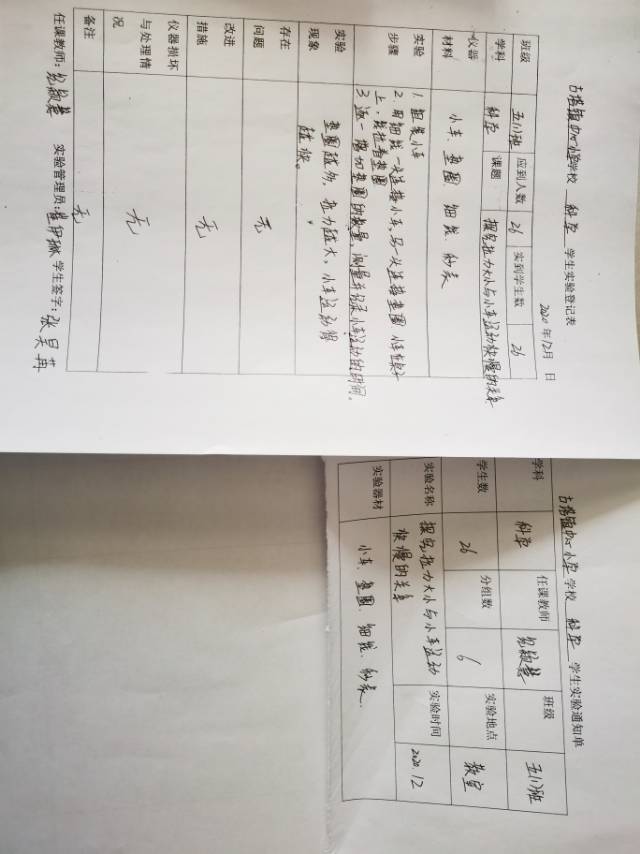 学校 科学 学生实验登记表
2020年12月 日
班级 五(1)班 应到人数 26 实到学生数 26
学科 科学 课题 探究拉力大小与小车运动快慢的关系
仪器材料 小车、垫圈、细线、秒表
实验步骤 1. 组装小车
2. 用细线一头连接小车,另一头连接垫圈
上,
3. 逐一增加垫圈的数量,测量并记录小车运动的时间。
实验现象 垫圈越多,拉力越大,小车运动得
越快。
存在问题 无
改进措施 无
仪器损坏与处理情况 无
备注 无
任课教师: 实验管理员: 学生签字:
小学 学校 科学 学生实验通知单
学科 科学 任课教师 班级 五(1)班
学生数 26 分组数 6 实验地点 教室
实验名称 探究拉力大小与小车运动
快慢的关系 实验时间 2020.12
实验器材 小车、垫圈、细线、秒表